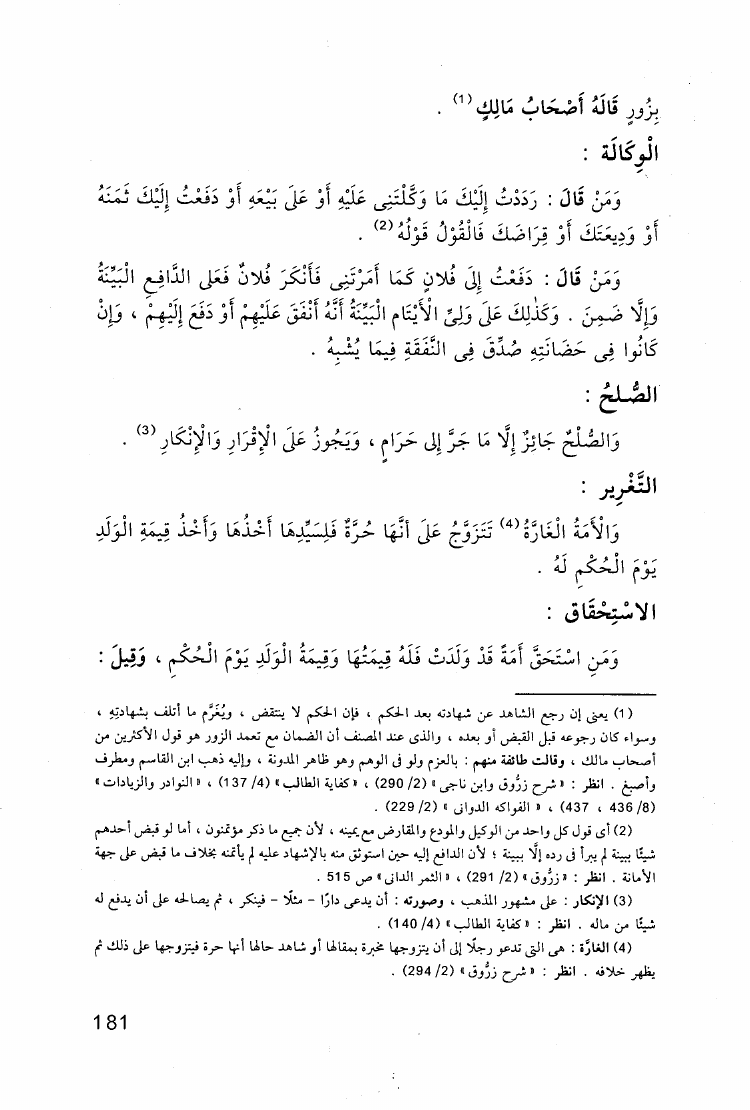 بِزُورٍ قَالَهُ أَصْحَابُ مَالِكٍ (1) .
الْوِكَالَة :
وَمَنْ قَالَ : رَدَدْتُ إِلَيْكَ مَا وَكَّلْتَنِى عَلَيْهِ أَوْ عَلَى بَيْعَهِ أَوْ دَفَعْتُ إِلَيْكَ ثَمَنَهُ
أَوْ وَدِيعَتَكَ أَوْ قِرَاضَكَ فَالْقَوْلُ قَوْلُهُ (2) .
وَمَنْ قَالَ : دَفَعْتُ إِلَى فُلانٍ كَمَا أَمَرْتَنِى فَأَنْكَرَ فُلانٌ فَعَلى الدَّافِعِ الْبَيِّنَةُ
وَإِلَّا ضَمِنَ . وَكَذٰلِكَ عَلَى وَلِىِّ الأَيْتَامِ الْبَيِّنَةُ أَنَّهُ أَنْفَقَ عَلَيْهِمْ أَوْ دَفَعَ إِلَيْهِمْ ، وَإِنْ
كَانُوا فِى حَضَانَتِهِ صُدِّقَ فِى النَّفَقَةِ فِيمَا يُشْبِهُ .
الصُّلحُ :
وَالصُّلْحُ جَائِزٌ إِلَّا مَا جَرَّ إِلى حَرَامٍ ، وَيَجُوزُ عَلَى الْإِقْرَارِ وَالْإِنْكَارِ (3) .
التَّغْرِير :
وَالْأَمَةُ الْغَارَّةُ (4) تَتَزَوَّجُ عَلَى أَنَّهَا حُرَّةٌ فَلِسَيِّدِهَا أَخْذُهَا وَأَخْذُ قِيمَةِ الْوَلَدِ
يَوْمَ الْحُكْمِ لَهُ .
الاسْتِحْقَاق :
وَمَنِ اسْتَحَقَّ أَمَةً قَدْ وَلَدَتْ فَلَهُ قِيمَتُهَا وَقِيمَةُ الْوَلَدِ يَوْمَ الْحُكْمِ ، وَقِيلَ :
(1) يعنى إن رجع الشاهد عن شهادته بعد الحكم ، فإن الحكم لا ينتقض ، ويُغَرَّم ما أتلف بشهادتِهِ ،
وسواء كان رجوعه قبل القبض أو بعده ، والذى عند المصنف أن الضمان مع تعمد الزور هو قول الأكثرين من
أصحاب مالك ، وقالت طائفة منهم : بالعزم ولو فى الوهم وهو ظاهر المدونة ، وإليه ذهب ابن القاسم ومطرف
وأصبغ . انظر : « شرح زرُّوق وابن ناجى » (2/ 290) ، « كفاية الطالب » (4/ 137) ، « النوادر والزيادات »
(8/ 436 ، 437) ، « الفواكه الدوانى » (2/ 229) .
(2) أى قول كل واحد من الوكيل والمودع والمقارض مع يمينه ، لأن جميع ما ذكر مؤتمنون ، أما لو قبض أحدهم
شيئًا ببينة لم يبرأ فى رده إلَّا ببينة ؛ لأن الدافع إليه حين استوثق منه بالإشهاد عليه لم يأتمنه بخلاف ما قبض على جهة
الأمانة . انظر : « زرُّوق » (2/ 291) ، « الثمر الدانى » ص 515 .
(3) الإنكار : على مشهور المذهب ، وصورته : أن يدعى دارًا – مثلًا – فينكر ، ثم يصالحه على أن يدفع له
شيئًا من ماله . انظر : « كفاية الطالب » (4/ 140) .
(4) الغارَّة : هى التى تدعو رجلًا إلى أن يتزوجها مخبرة بمقالها أو شاهد حالها أنها حرة فيتزوجها على ذلك ثم
يظهر خلافه . انظر : « شرح زرُّوق » (2/ 294) .
181